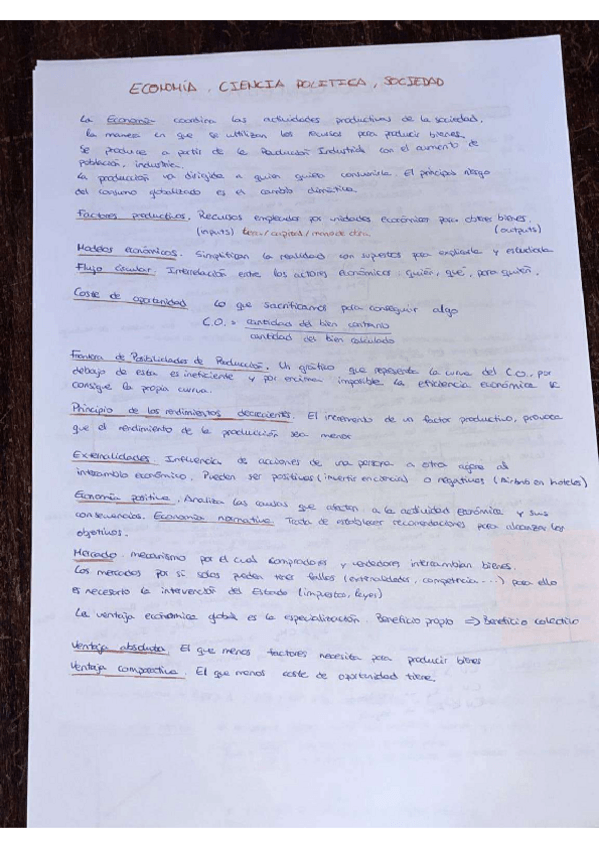 ECONOMÍA, CIENCIA POLITICA, SOCIEDAD
La Economía coordina las actividades productivas de la sociedad,
la manera en que se utilizan los recursos para producir bienes.
Se produce a partir de la Revolución Industrial con el aumento de
población, industria.
La producción va dirigida a quien quiera consumirla. El principal riesgo
del consumo globalizado es el cambio climático.
Factores productivos. Recursos empleados por unidades económicas para obtener bienes.
(inputs) tierra/capital/mano de obra (outputs)
Modelos económicos. Simplifican la realidad con supuestos para explicarla y estudiarla
Flujo circular. Interrelación entre los actores económicos: quién, qué, para quién.
Coste de oportunidad Lo que sacrificamos para conseguir algo
C.O. = cantidad del bien contrario
cantidad del bien calculado
Frontera de Posibilidades de Producción. Un gráfico que representa la curva del C.O., por
debajo de esta es ineficiente y por encima imposible. La eficiencia económica se
consigue la propia curva.
Principio de los rendimientos decrecientes. El incremento de un factor productivo, provoca
que el rendimiento de la producción sea menor
Externalidades. Influencia de acciones de una persona a otra ajena al
intercambio económico. Pueden ser positivas (invertir en ciencia) o negativas (Airbnb en hoteles)
Economía positiva. Analiza las causas que afectan a la actividad económica y sus
consecuencias. Economía normativa. Trata de establecer recomendaciones para alcanzar los
objetivos.
Mercado. mecanismo por el cual compradores y vendedores intercambian bienes.
Los mercados por si solos pueden tener fallos (externalidades, competencia...) para ello
es necesario la intervención del Estado (impuestos, leyes)
La ventaja económica global es la especialización. Beneficio propio => Beneficio colectivo
Ventaja absoluta. El que menos factores necesita para producir bienes
Ventaja comparativa. El que menos coste de oportunidad tiene.